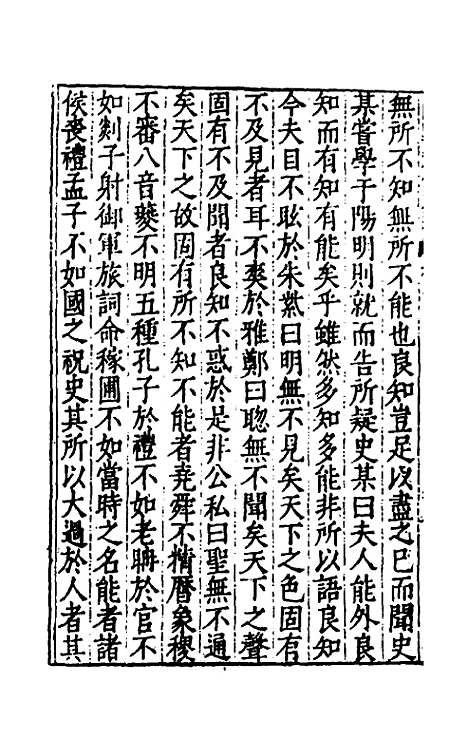 無所不知無所不能也良知豈足以盡之巳而聞史
某嘗學于陽明則就而告所疑史某曰夫人能外良
知而有知有能矣乎雖然多知多能非所以語良知
今夫目不眩於朱紫曰明無不見矣天下之色固有
不及見者耳不爽於雅鄭曰聰無不聞矣天下之聲
固有不及聞者良知不惑於是非公私曰聖無不通
矣天下之故固有所不知不能者堯舜不精曆象稷
不審八音夔不明五種孔子於禮不如老聃於官不
如剡子射御軍旅詞命稼圃不如當時之名能者諸
侯喪禮孟子不如國之祝史其所以大過於人者其